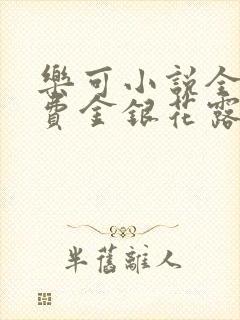 樂可小說全
費金銀花露
半舊離人